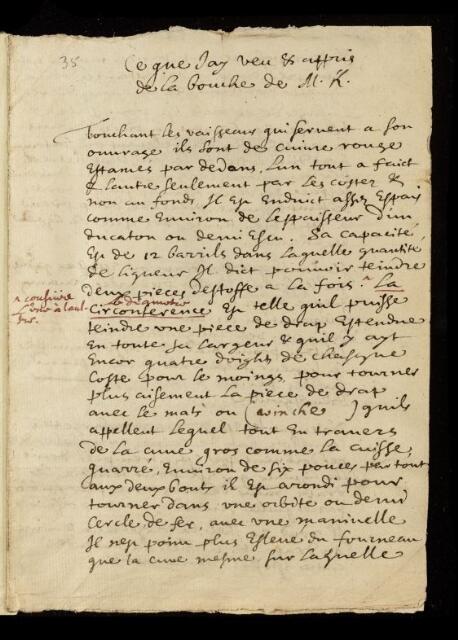 35
Ce que Jay veu & appris
de la bouche de M. K.
Touchant les vaisseaux qui servent a son
ouvrage ils sont de cuivre rouge
Estamés par dedans, l'un tout a faict
& l'autre seulement par les costez &
non au fond. Il Est Enduict assez Espais
comme Environ de l'espaisseur d'un
ducaton ou demi Escu. Sa capacité
Est de 12 barrils dans laquelle quantité
de liqueur Il dict pouvoir teindre
deux pieces d'estoffe a la fois. La
Circonference Est telle qu'il puisse
teindre une piece de drap Estendue
En toute sa largeur & qu'il y ayt
Encor quatre doights de chasque
Coste pour le moings pour tourner
plus aisement la piece de drap
avec le mats ou (winche ) qu'ils
appellent lequel tout En travers
de la cuve gros comme la cuisse,
quarré, Environ de six pouces par tout
aux deux bouts il Est arondi pour
tourner dans une orbite ou demi
Cercle de fer, avec une manivelle
Il n'est point plus Esleve du fourneau
que la cuve mesme sur laquelle